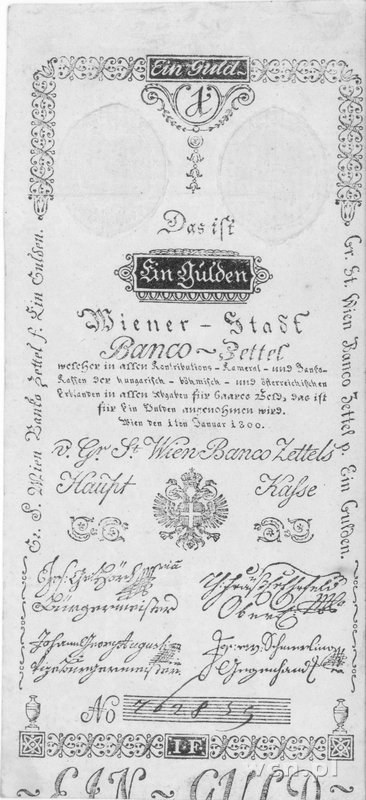 Ein Guld.
1
Das ist
Ein Gulden
Wiener - Stadt
Banco ~ Zettel
welcher in allen Kontributions - Kameral - und Banko-
Kassen der hungarisch - böhmisch - und österreichischen
Erblanden in allen Abgaben für baares Geld, das ist
für Ein Gulden angenohmen wird.
Wien den 1ten Januar 1800.
v. Gr. St. Wien Banco Zettels
Haupt Kasse
Gr. S. Wien Banko Zettel f. Ein Gulden.
Gr. St. Wien Banco Zettel p. Ein Gulden.
Bürgermeister
Oberk
Johann Georg Augusti
Vizebürgermeister
Gegenhandl
No 762835
1 F
~ EIN ~ GULD ~
wcn.pl